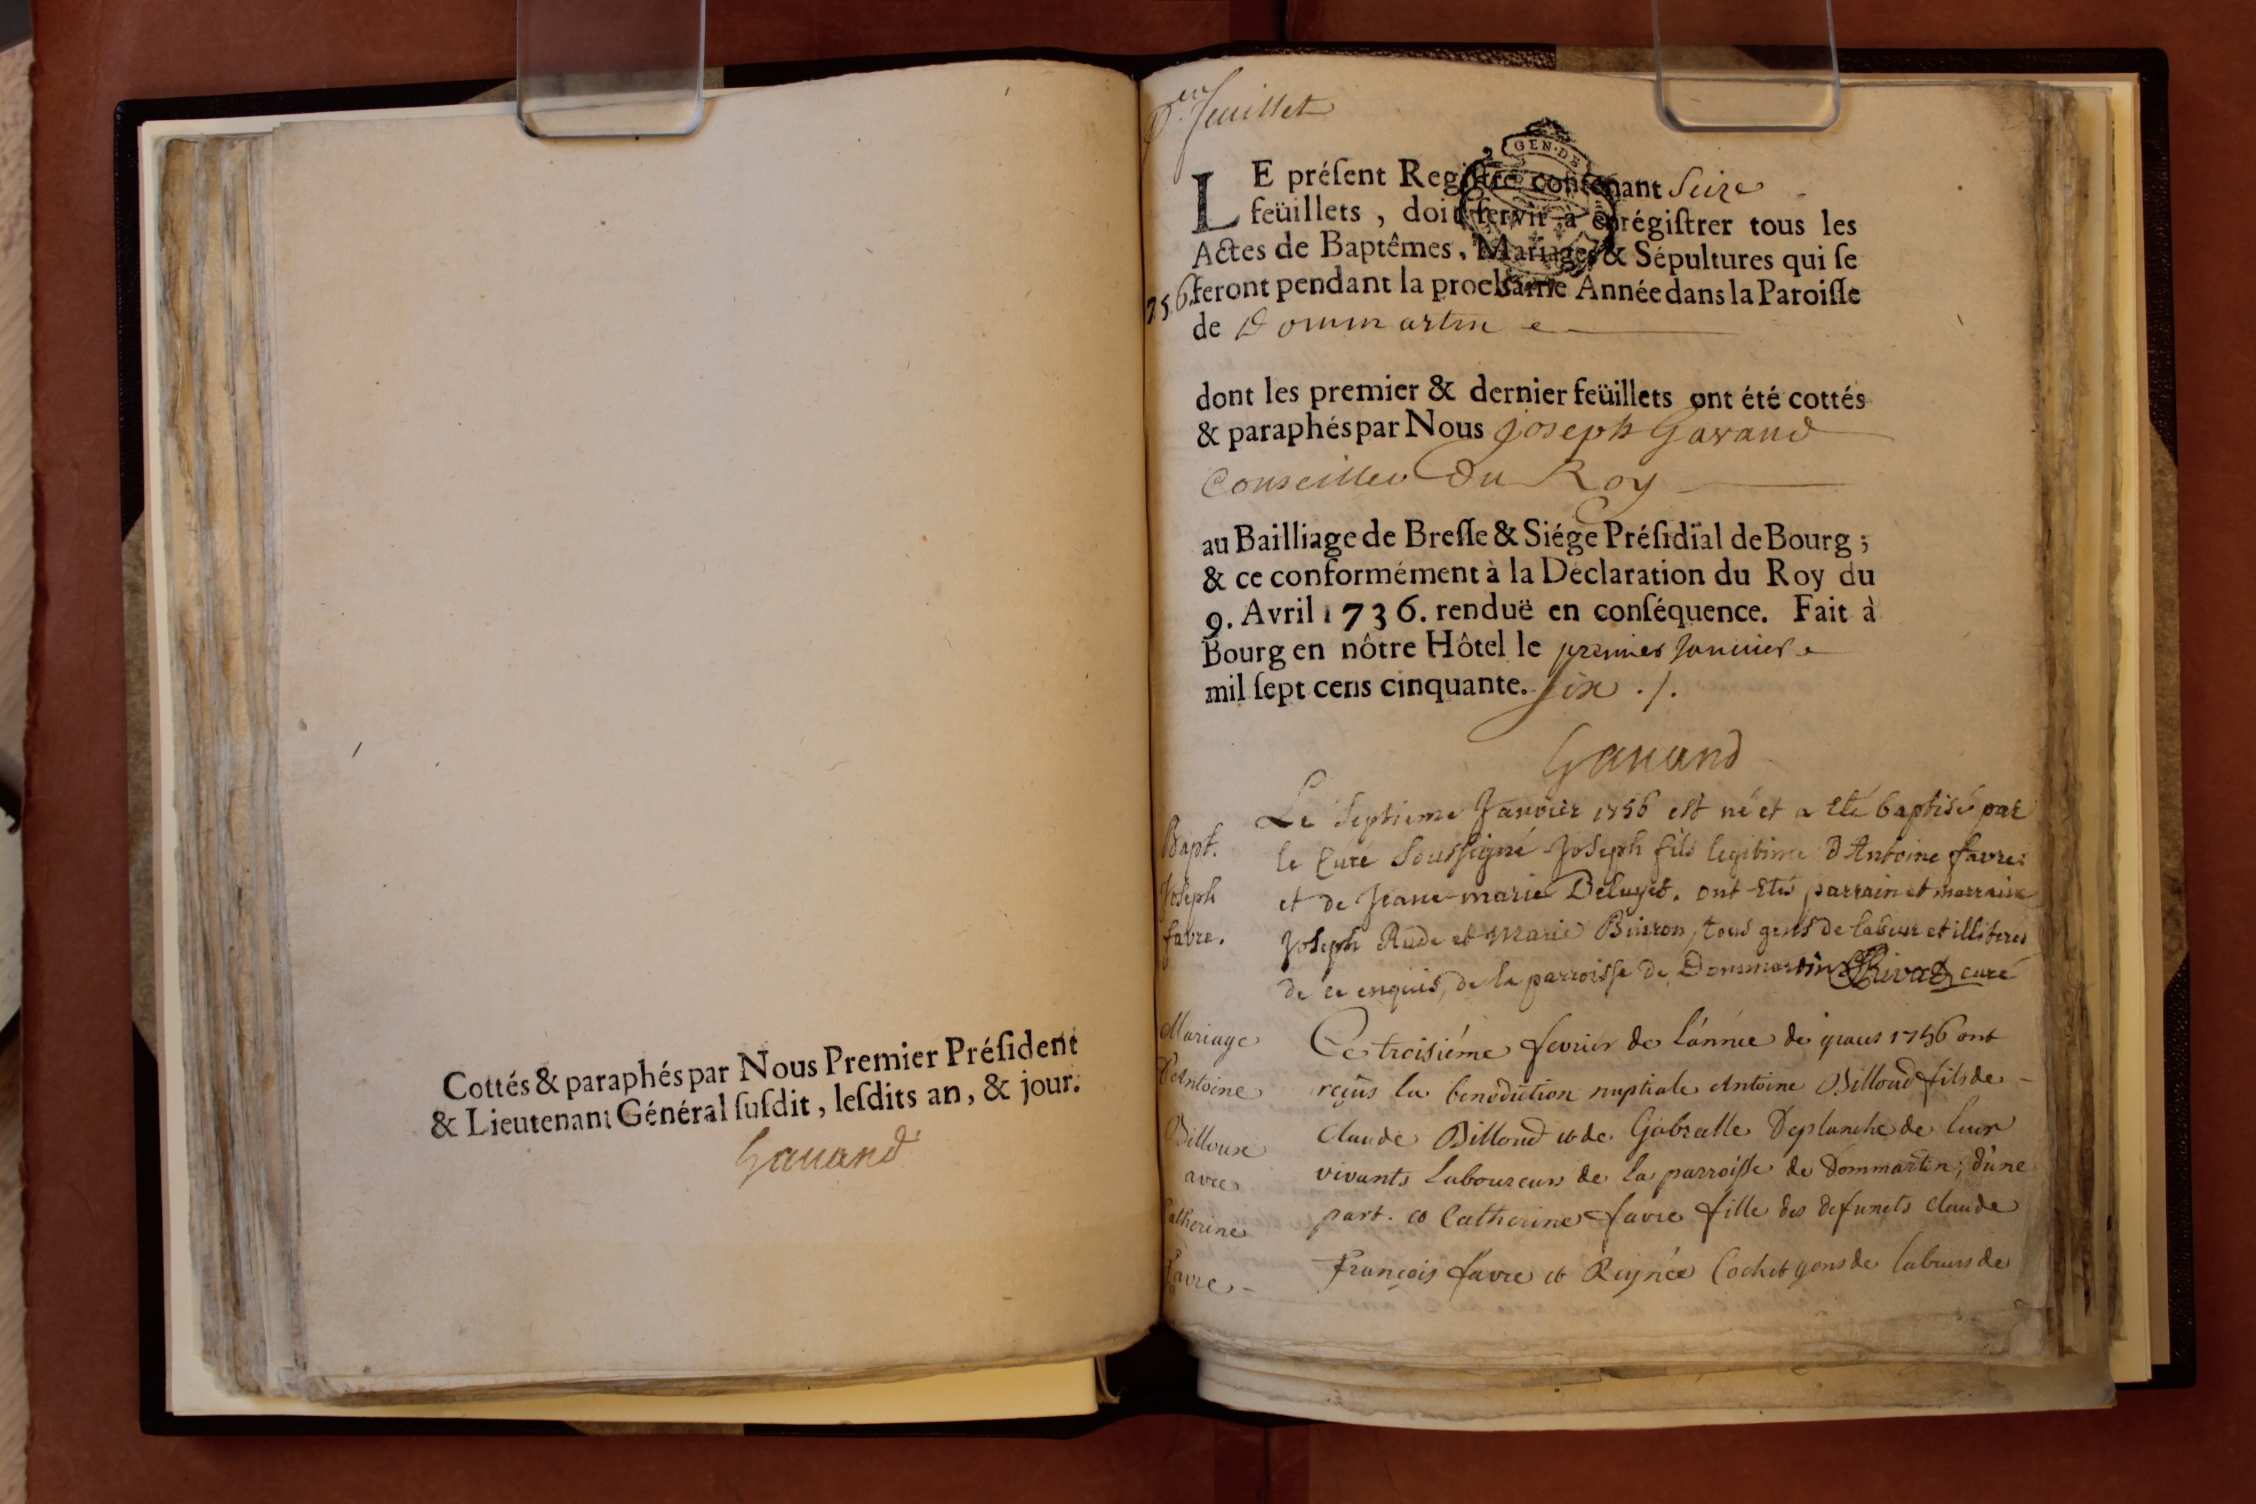 Cottés & paraphés par Nous Premier Préſident
& Lieutenant Général ſuſdit, leſdits an, & jour.
Gauand
P.er feuillet
GEN·DE
LE préſent Regiſtre contenant Seize
feüillets, doit ſervir à enrégiſtrer tous les
Actes de Baptêmes, Mariages & Sépultures qui ſe
feront pendant la prochaine Année dans la Paroiſſe
de Dommartin
dont les premier & dernier feüillets ont été cottés
& paraphés par Nous Joseph Gavand
Conseiller Du Roy
au Bailliage de Breſſe & Siége Préſidial de Bourg ;
& ce conformément à la Déclaration du Roy du
9. Avril 1736. renduë en conſéquence. Fait à
Bourg en nôtre Hôtel le premier Januier
mil ſept cens cinquante. six ./.
Gauand
Bapt.
Joseph
favre.
Le Septieme Janvier 1756 est né et a Eté baptisé par
le Curé Soussigné Joseph fils legitime d'Antoine favre
et de Jeane-marie . ont Etés parrain et marraine
Joseph Rude et Marie , tous gens de labeur et
de ce enquis, de la parroisse de Dommartin Rivat curé
Mariage
d'Antoine
Billoux
avec
Catherine
favre
Ce troisiéme fevrier de l'année de grace 1756 ont
reçûs la benediction nuptiale Antoine Billoud fils de
Claude Billoud et de Gabrielle Deplanche de leur
vivants laboureurs de la parroisse de Dommartin; d'une
part. et Catherine favre fille des defuncts Claude
François favre et Reynée Cochet gens de labeurs de